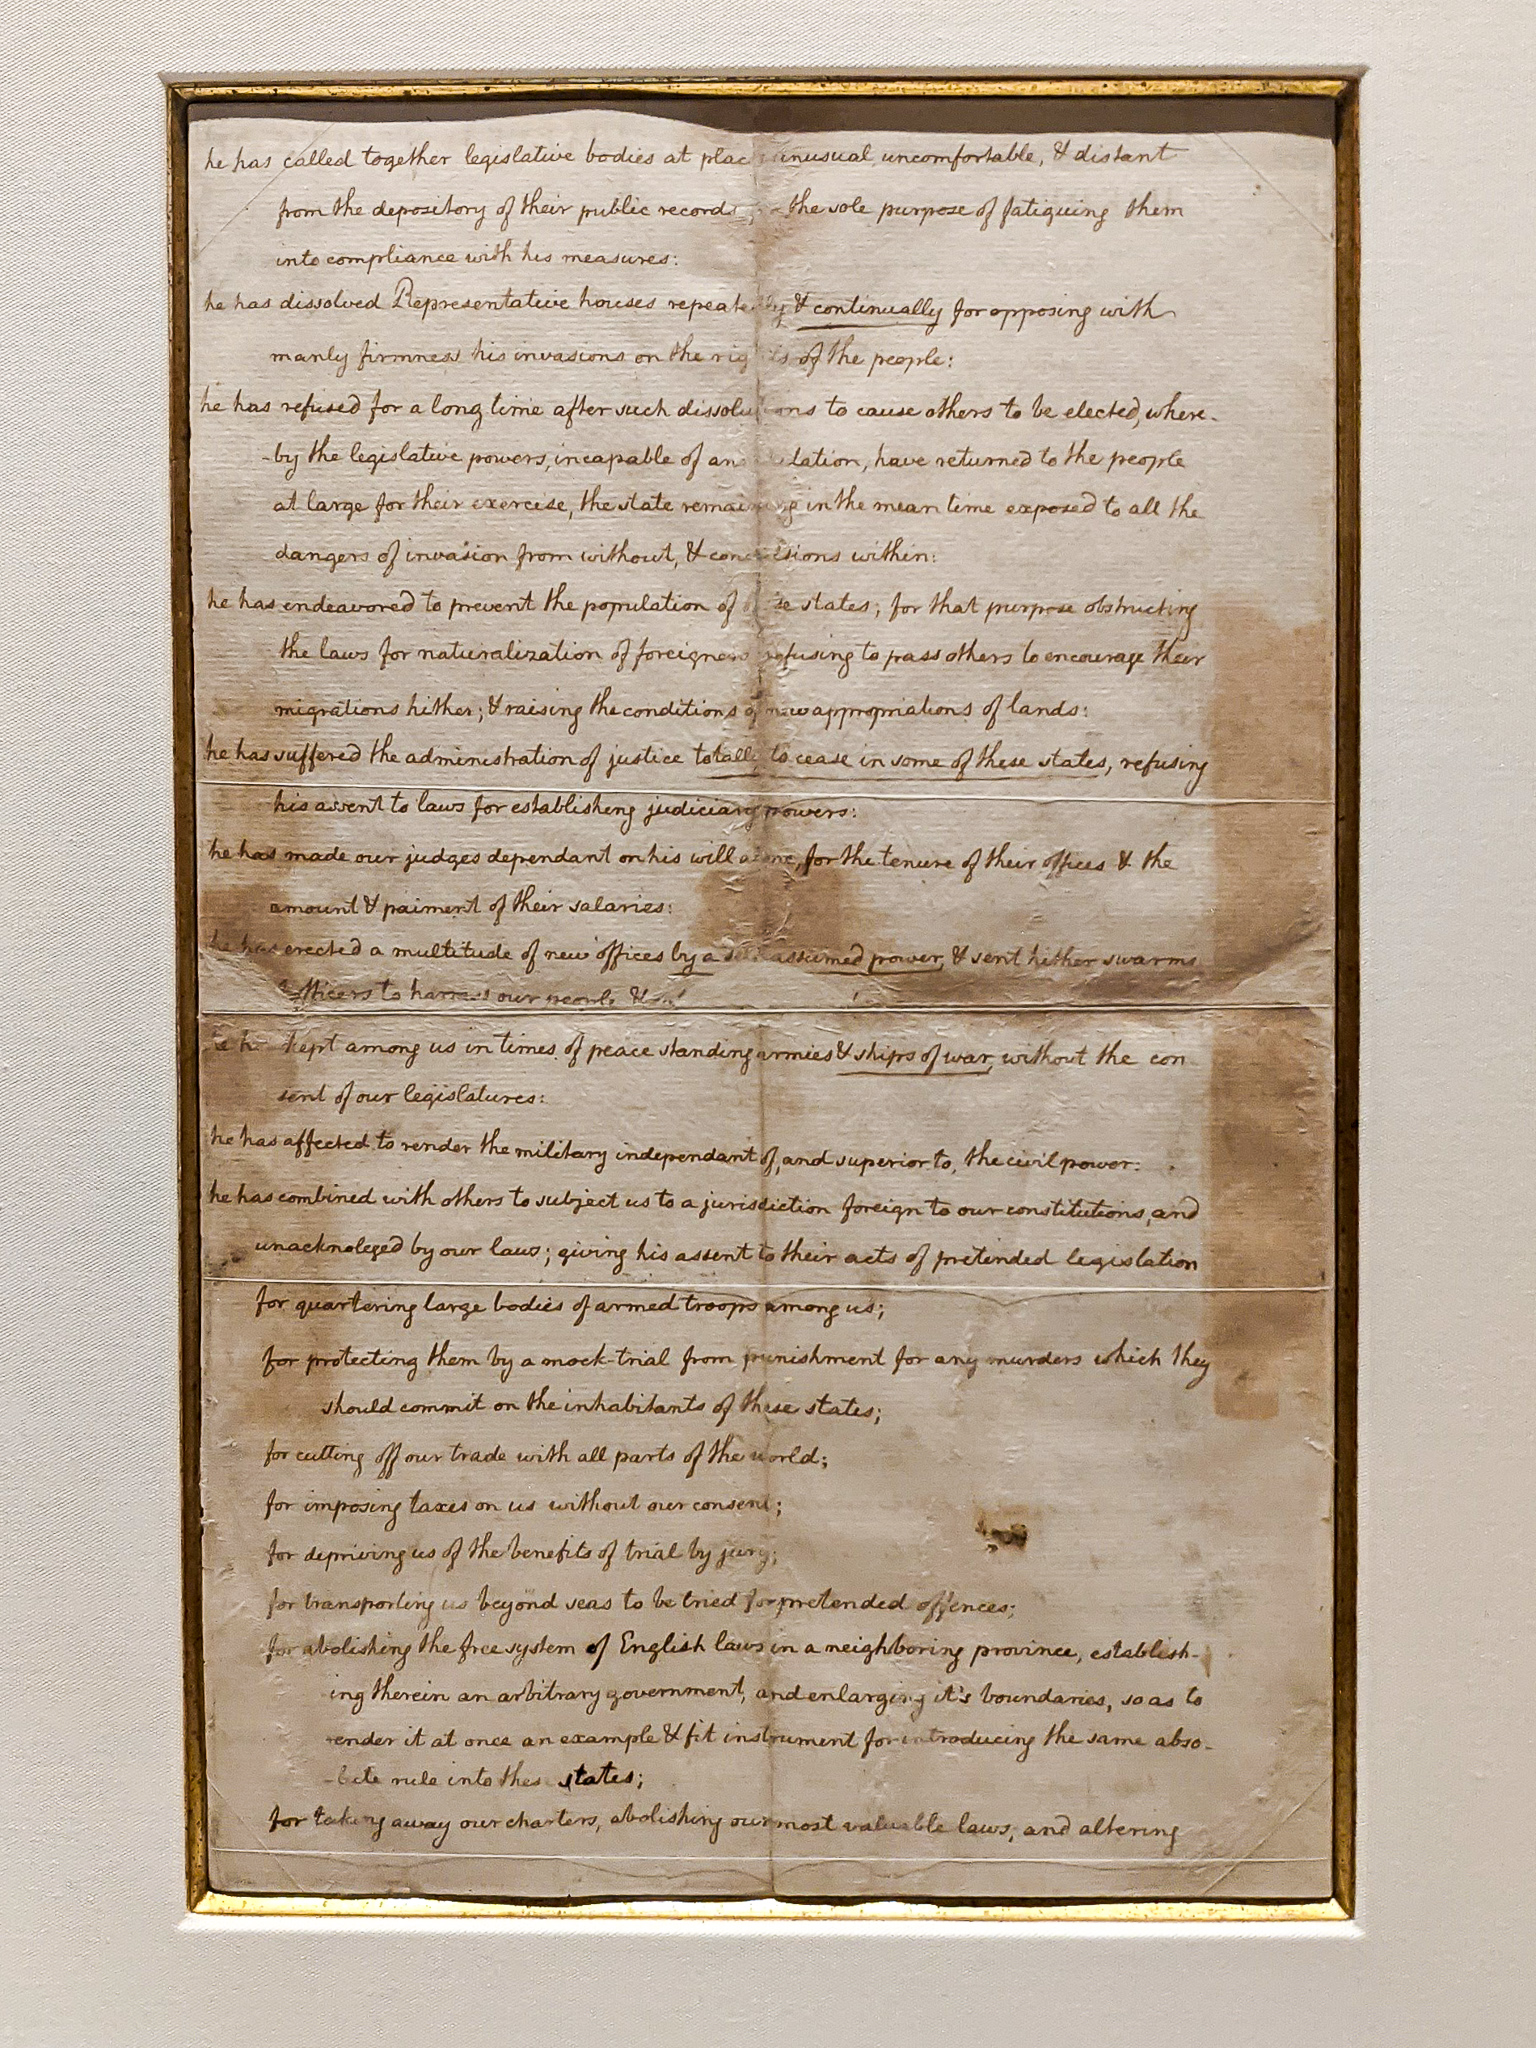 he has called together legislative bodies at places unusual, uncomfortable, & distant
from the depository of their public records, the sole purpose of fatiguing them
into compliance with his measures:
he has dissolved Representative houses repeatedly & continually for opposing with
manly firmness his invasions on the rights of the people:
he has refused for a long time after such dissolutions to cause others to be elected, where-
-by the legislative powers, incapable of annihilation, have returned to the people
at large for their exercise, the state remaining in the mean time exposed to all the
dangers of invasion from without, & convulsions within:
he has endeavored to prevent the population of these states; for that purpose obstructing
the laws for naturalization of foreigners refusing to pass others to encourage their
migrations hither; & raising the conditions of new appropriations of lands:
he has suffered the administration of justice totally to cease in some of these states, refusing
his assent to laws for establishing judiciary powers:
he has made our judges dependant on his will alone, for the tenure of their offices & the
amount & paiment of their salaries:
he has erected a multitude of new offices by a self assumed power, & sent hither swarms
officers to harrass our people &
he has kept among us in times of peace standing armies & ships of war, without the con
sent of our legislatures:
he has affected to render the military independant of, and superior to, the civil power:
he has combined with others to subject us to a jurisdiction foreign to our constitutions, and
unacknoleged by our laws; giving his assent to their acts of pretended legislation
for quartering large bodies of armed troops among us;
for protecting them by a mock-trial from punishment for any murders which they
should commit on the inhabitants of these states;
for cutting off our trade with all parts of the world;
for imposing taxes on us without our consent;
for depriving us of the benefits of trial by jury;
for transporting us beyond seas to be tried for pretended offences;
for abolishing the free system of English laws in a neighboring province, establish-
ing therein an arbitrary government, and enlarging it's boundaries, so as to
render it at once an example & fit instrument for introducing the same abso-
-lute rule into these states;
for taking away our charters, abolishing our most valuable laws, and altering